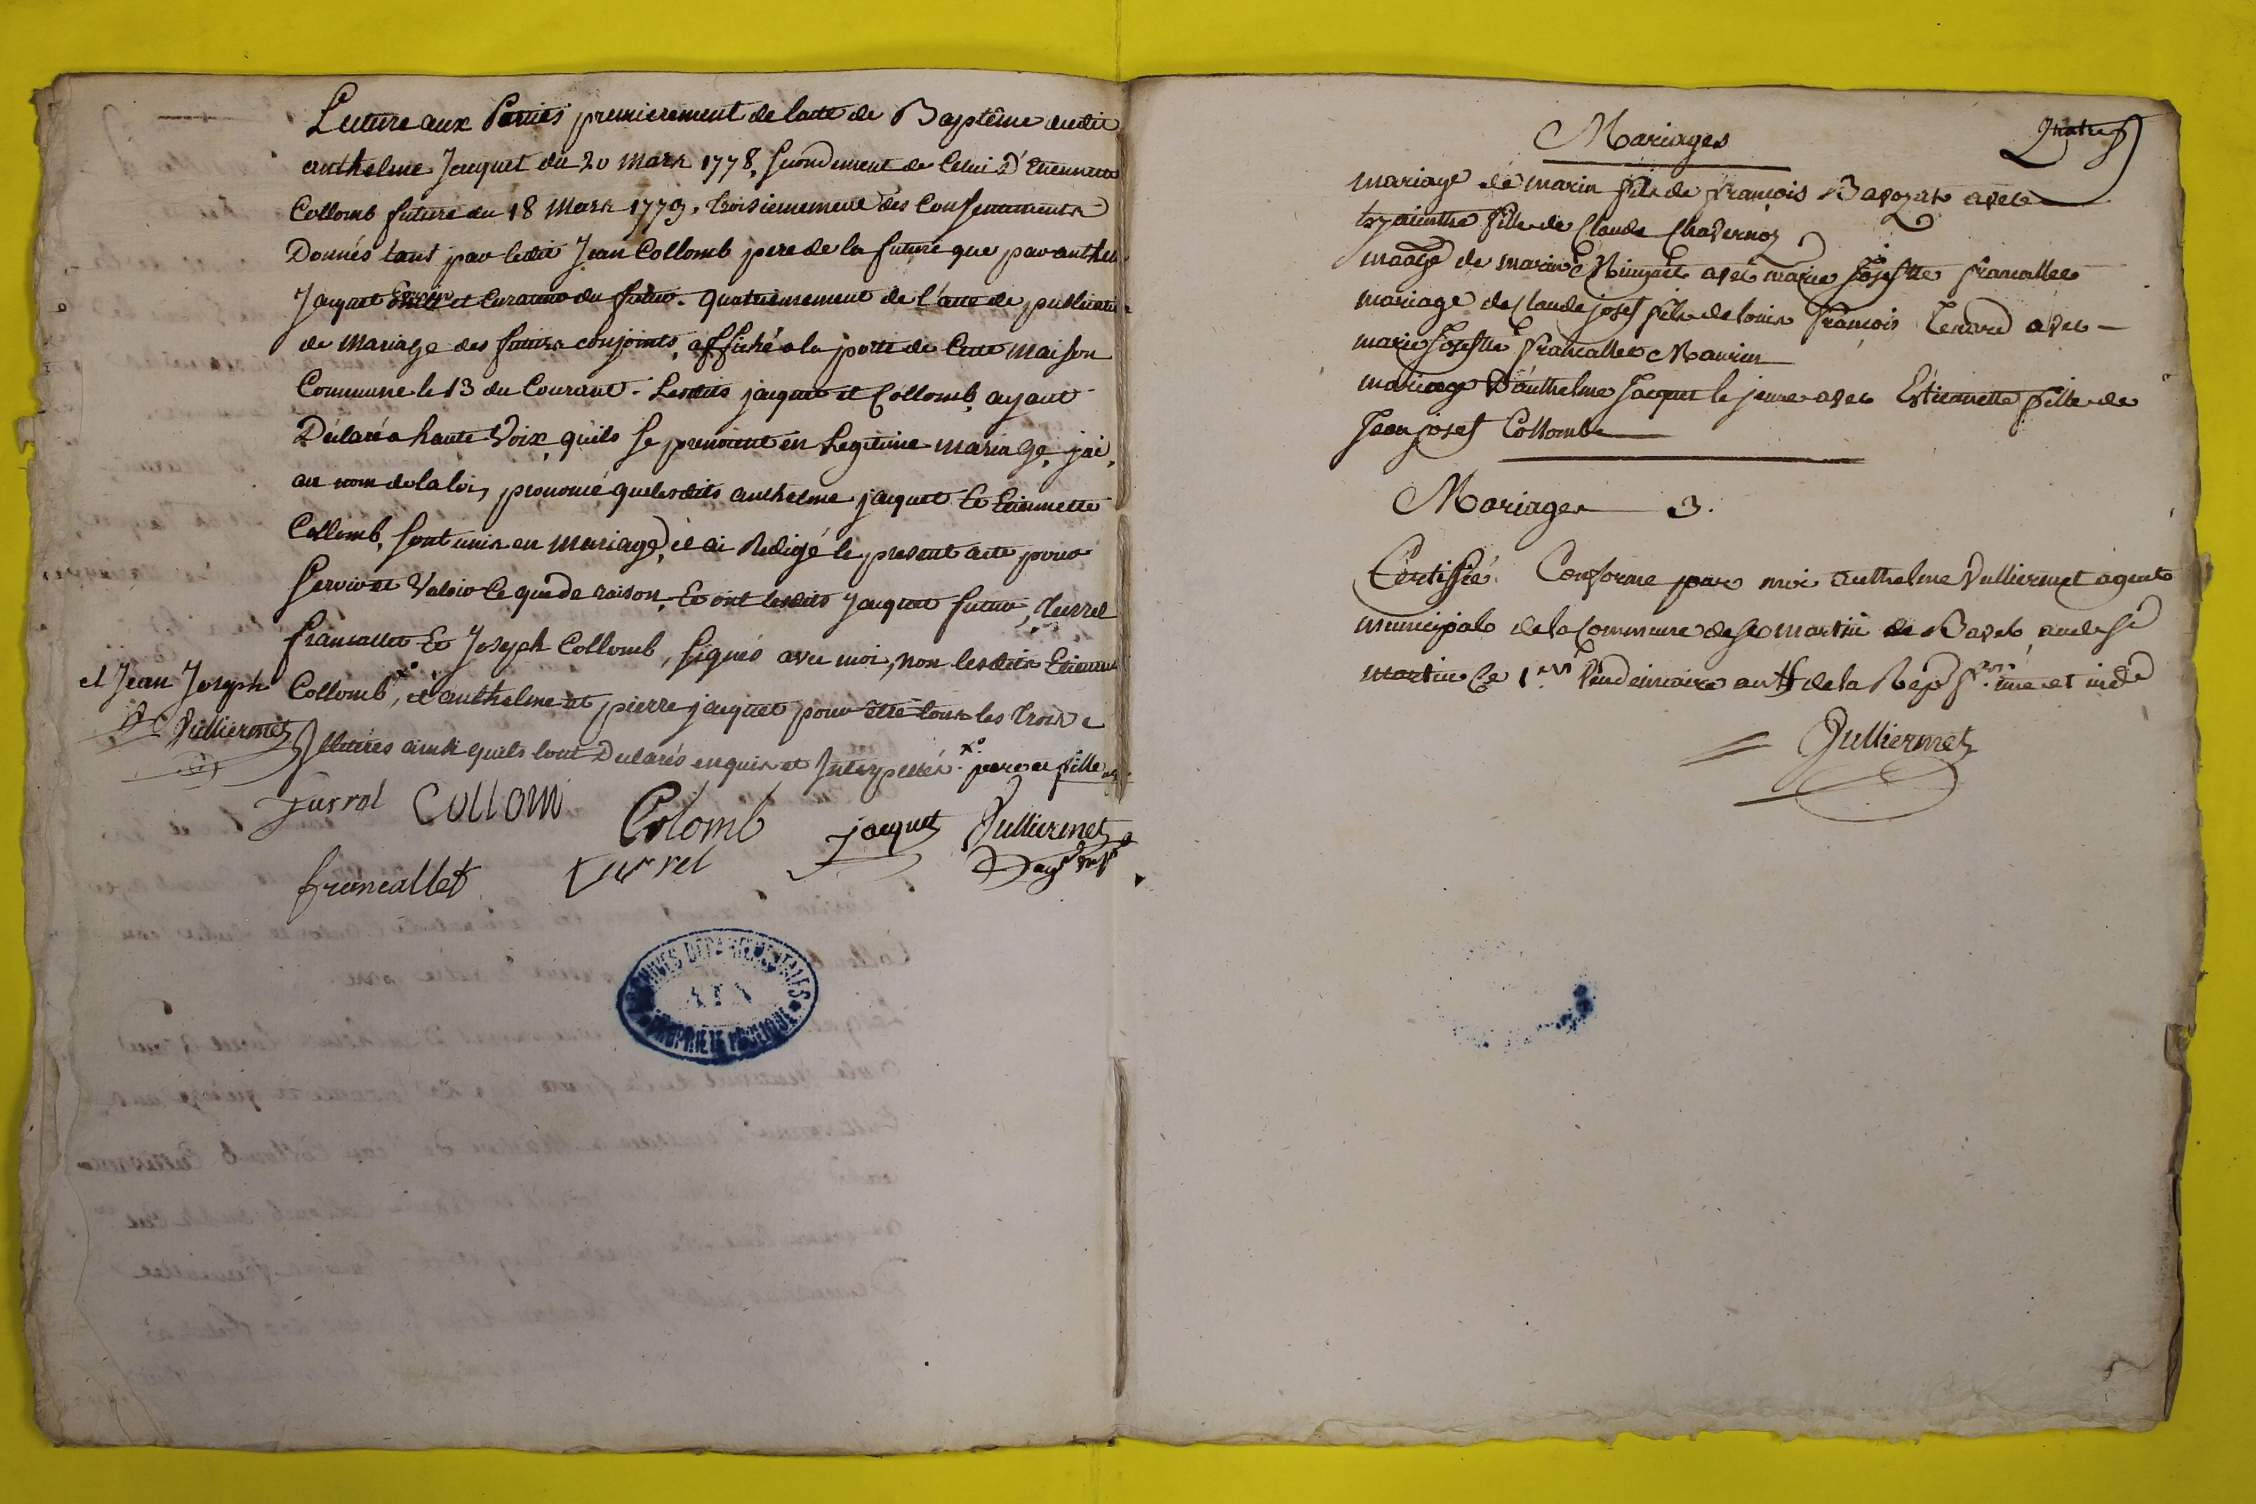 Lecture aux Parties premierement de lacte de Baptême dudit
anthelme Jacquet du 20 mars 1778, secondement de Celui D'Etiennette
Collomb future du 18 Mars 1779, troisiemement des Consentements
Donnés tant par ledit Jean Collomb pere de la future que par anthel
Jacquet et Curateur du futur. quatriemement de l'acte de publication
de Mariage des futurs conjoints, affiché a la porte de Cette maison
Commune le 13 du Courant. Lesdits jacquet et Collomb, ayant
Déclaré a haute Voix, quils se prenoient en Legitime mariage, jai,
au nom de la loi, prononcé que lesdits anthelme jacquet Et Etiennette
Collomb, sont unis en mariage, et ai Redigé le present acte pour
servir et Valoir Ce que de raison, Et ont lesdits Jacquet futur, Turrel
francallet Et Joseph Collomb, signés avec moi, non lesdits Etiennette
et Jean Joseph
Vulliermet
Collomb, xo et anthelme et pierre jacquet pour être tous les trois
Illiteres ainsi quils lont Declarés enquis et Interpellés. xo pere et fille
Turrol Collom Colomb jacquet Vulliermet
francallet Turrel agt
ARCHIVES DEPARTEMENTALES
AIN
PROPRIETE PUBLIQUE
Mariages
quatre
mariage de marin fils de françois Bavozat avec
hyacinthe fille de Claude Chavernoz
maage de marin Minguet avec marie Josephte francallet
mariage de Claude josef fils de louis françois Tenard avec
marie Josephte francallet Maurin
mariage D'anthelme Jacquet le jeune avec Estiennette fille de
Jean josef Collomb
Mariages 3.
Certiffié Conforme par moi anthelme Vulliermet agent
municipale de la Commune de St martin de Bavel, audt St
martin Ce 1er Vendemiaire an de la Rep fse une et indle
Vulliermet